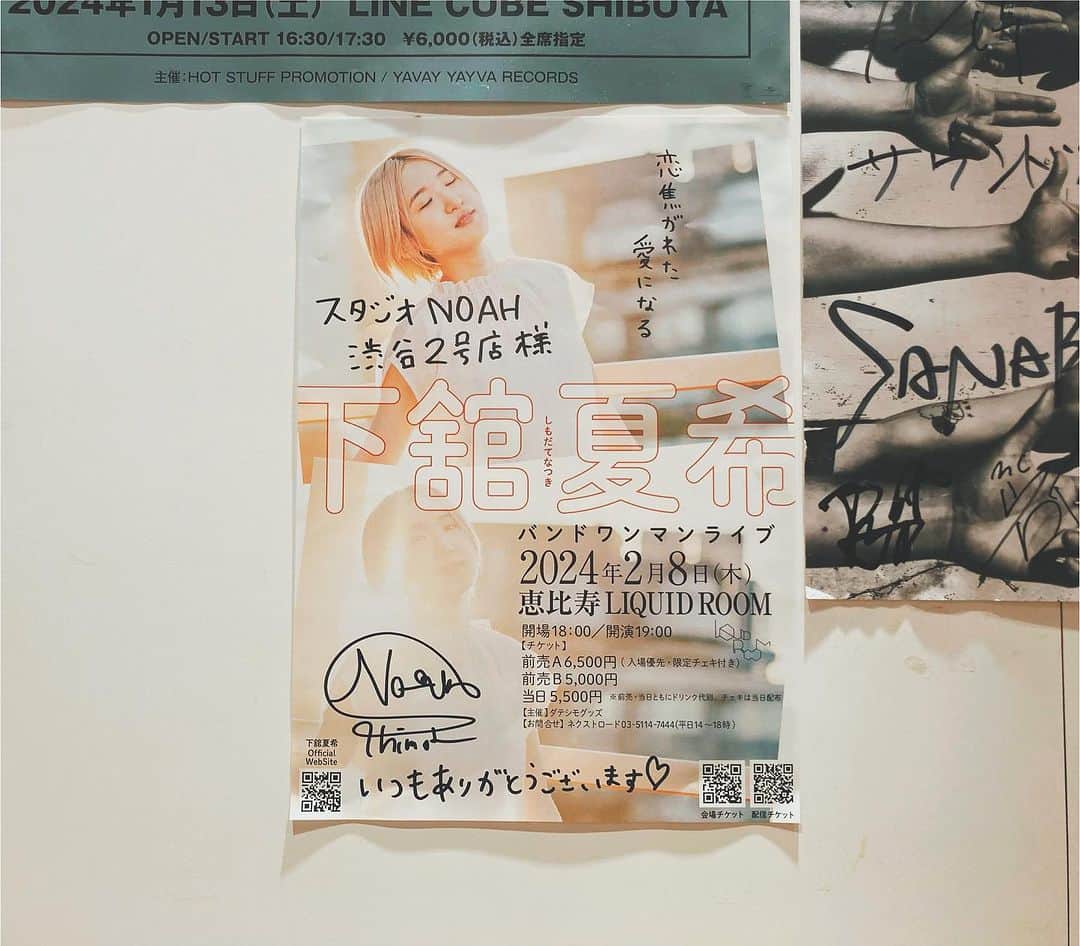 2024年1月13日(土) LINE CUBE SHIBUYA
OPEN/START 16:30/17:30 ¥6,000(税込)全席指定
主催:HOT STUFF PROMOTION / YAVAY YAYVA RECORDS
恋焦がれた
愛になる
スタジオNOAH
渋谷2号店様
下舘夏希
しもだてなつき
バンドワンマンライブ
2024年2月8日(木)
恵比寿 LIQUID ROOM
開場18:00/開演19:00
LIQUID ROOM
【チケット】
前売A 6,500円(入場優先・限定チェキ付き)
前売B 5,000円
当日 5,500円 ※前売・当日ともにドリンク代別、チェキは当日配布
【主催】ダテシモグッズ
【お問合せ】ネクストロード03-5114-7444(平日14〜18時)
下舘夏希
Official
WebSite
いつもありがとうございます♡
会場チケット 配信チケット
サウンド
SANAB